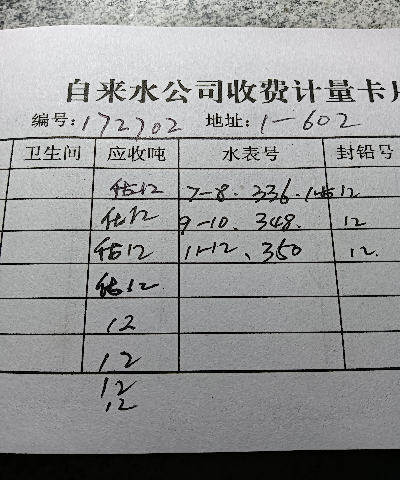 自来水公司收费计量卡片
编号:172702 地址:1-602
卫生间 应收吨 水表号 封铅号
估12 7-8. 336. 12
估12 9-10. 348. 12
估12 11-12、350 12.
估12
12
12
12
12